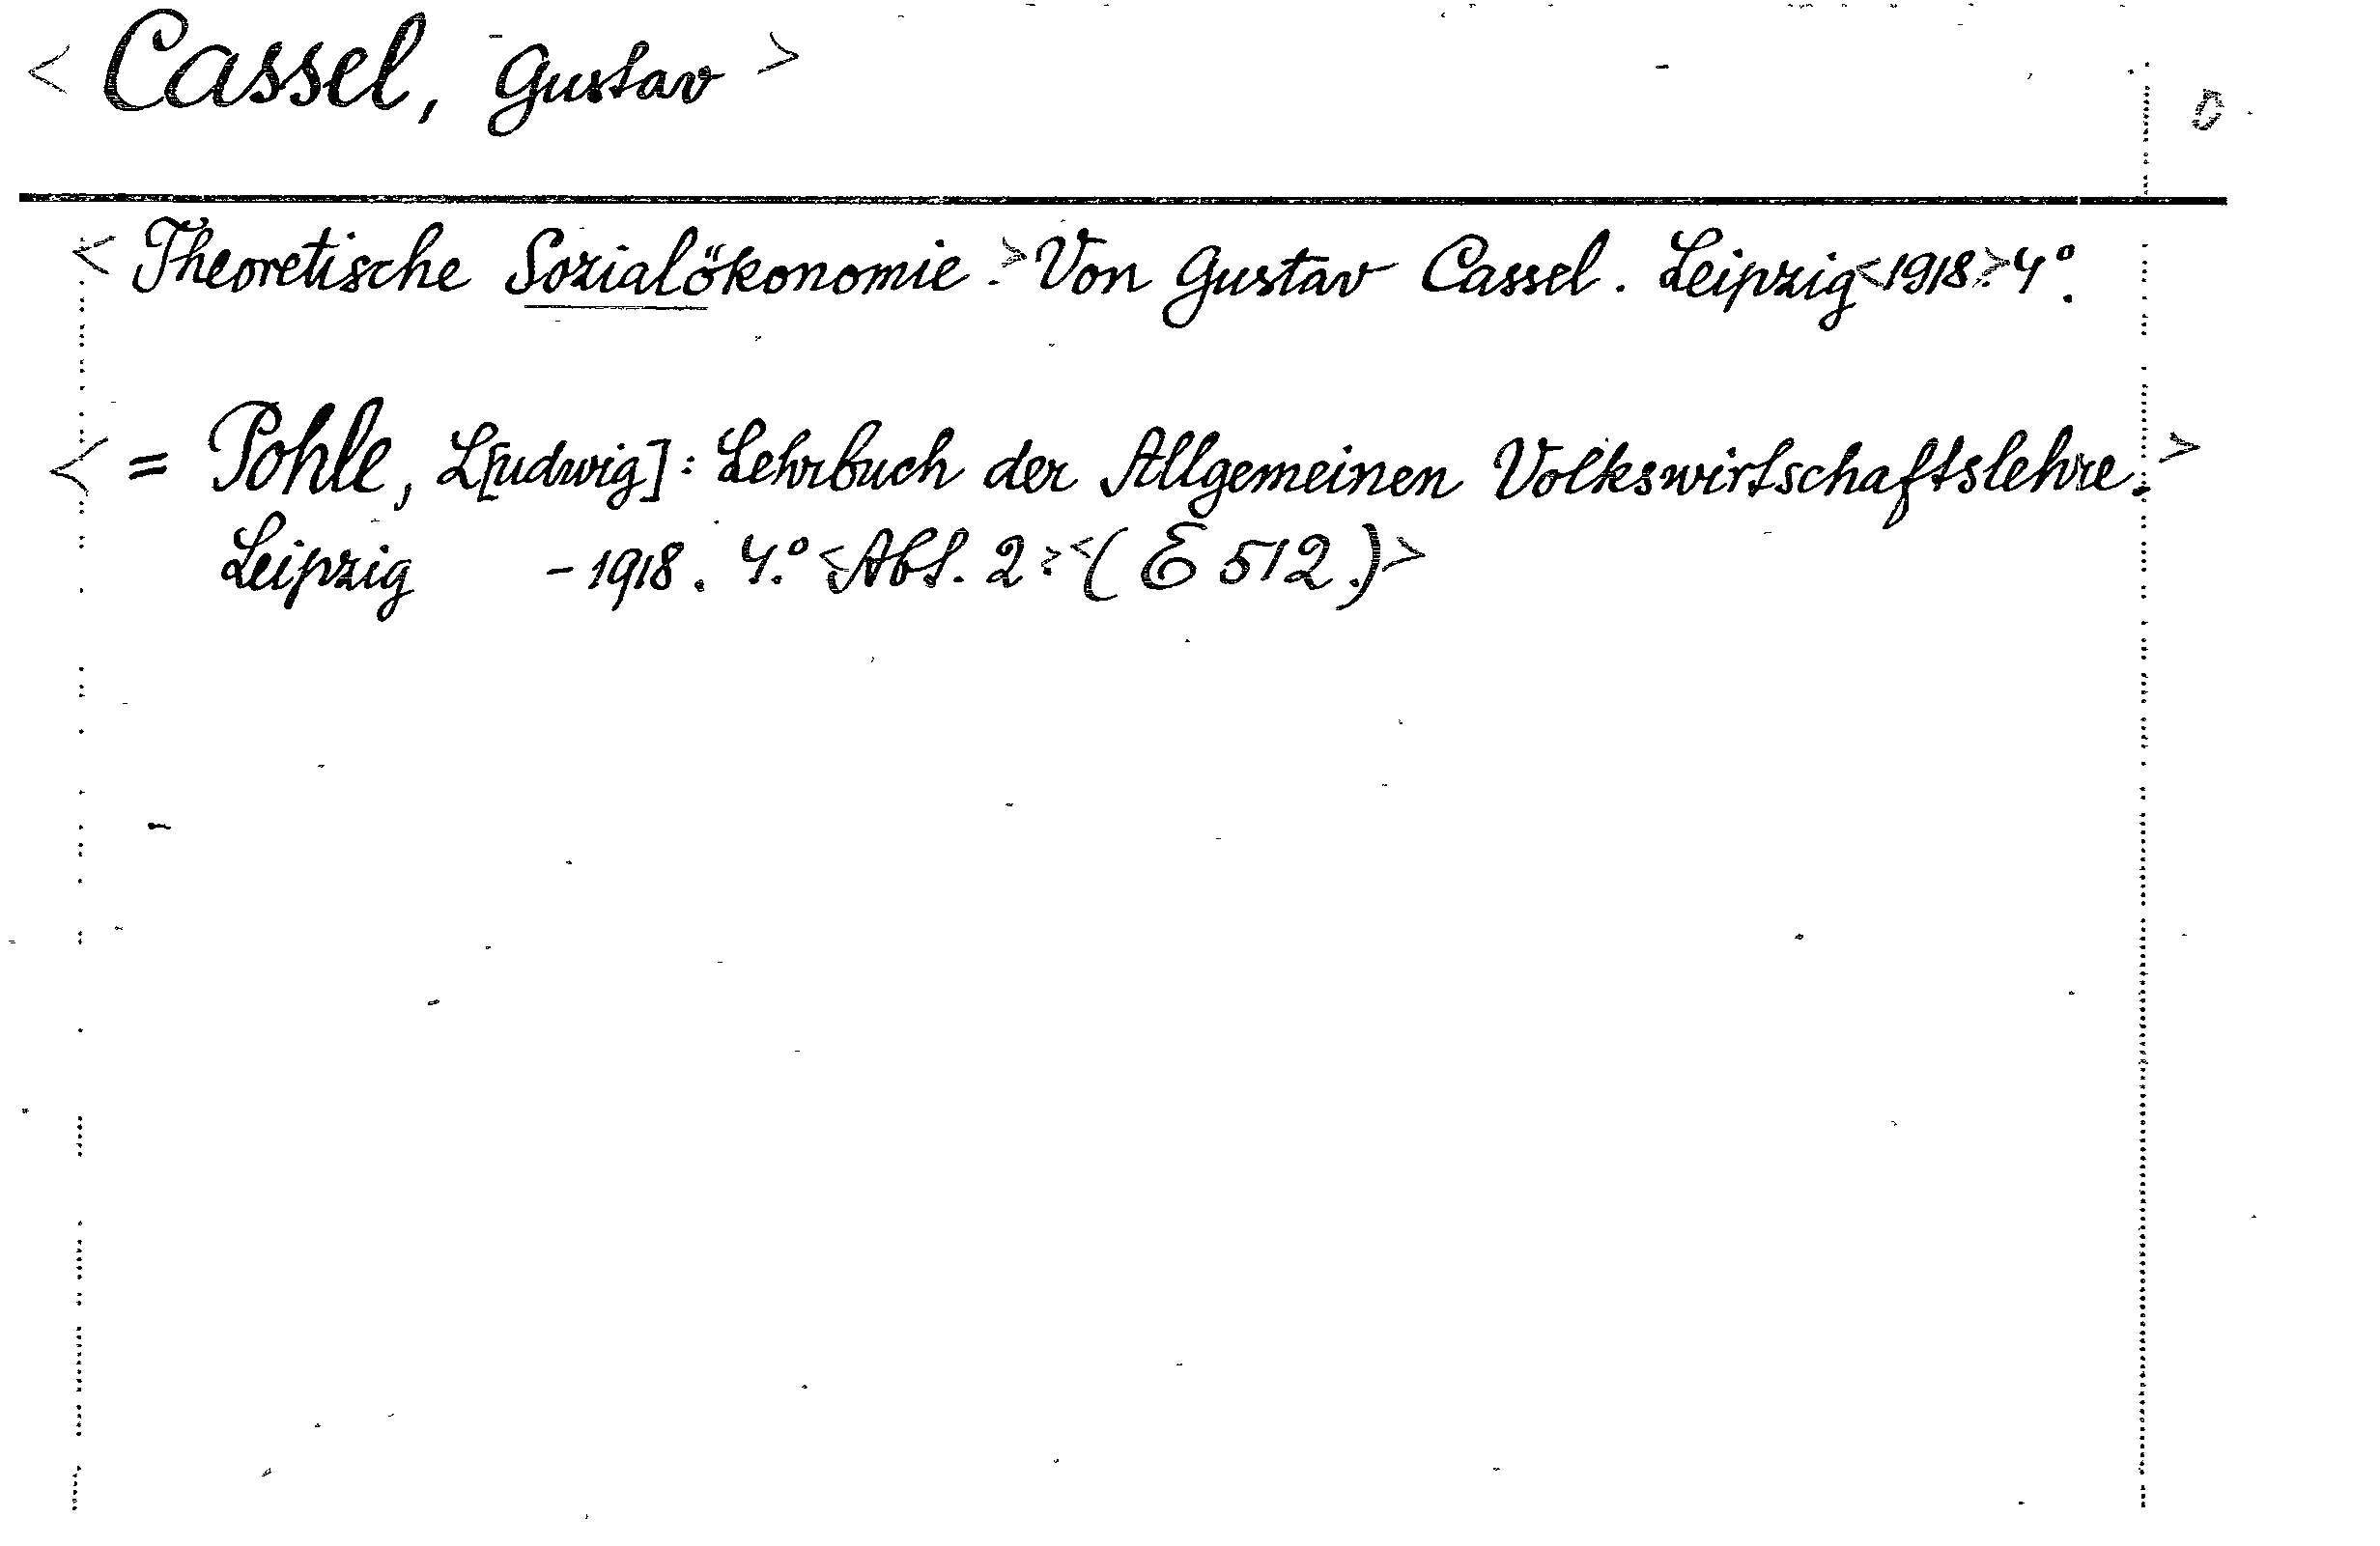 < Cassel, Gustav >
< Theoretische Sozialökonomie. > Von Gustav Cassel. Leipzig < 1918. > 4°.
< = Pohle, L[udwig]: Lehrbuch der Allgemeinen Volkswirtschaftslehre. >
Leipzig - 1918. 4.° < Abt. 2. > < (E 512.) >